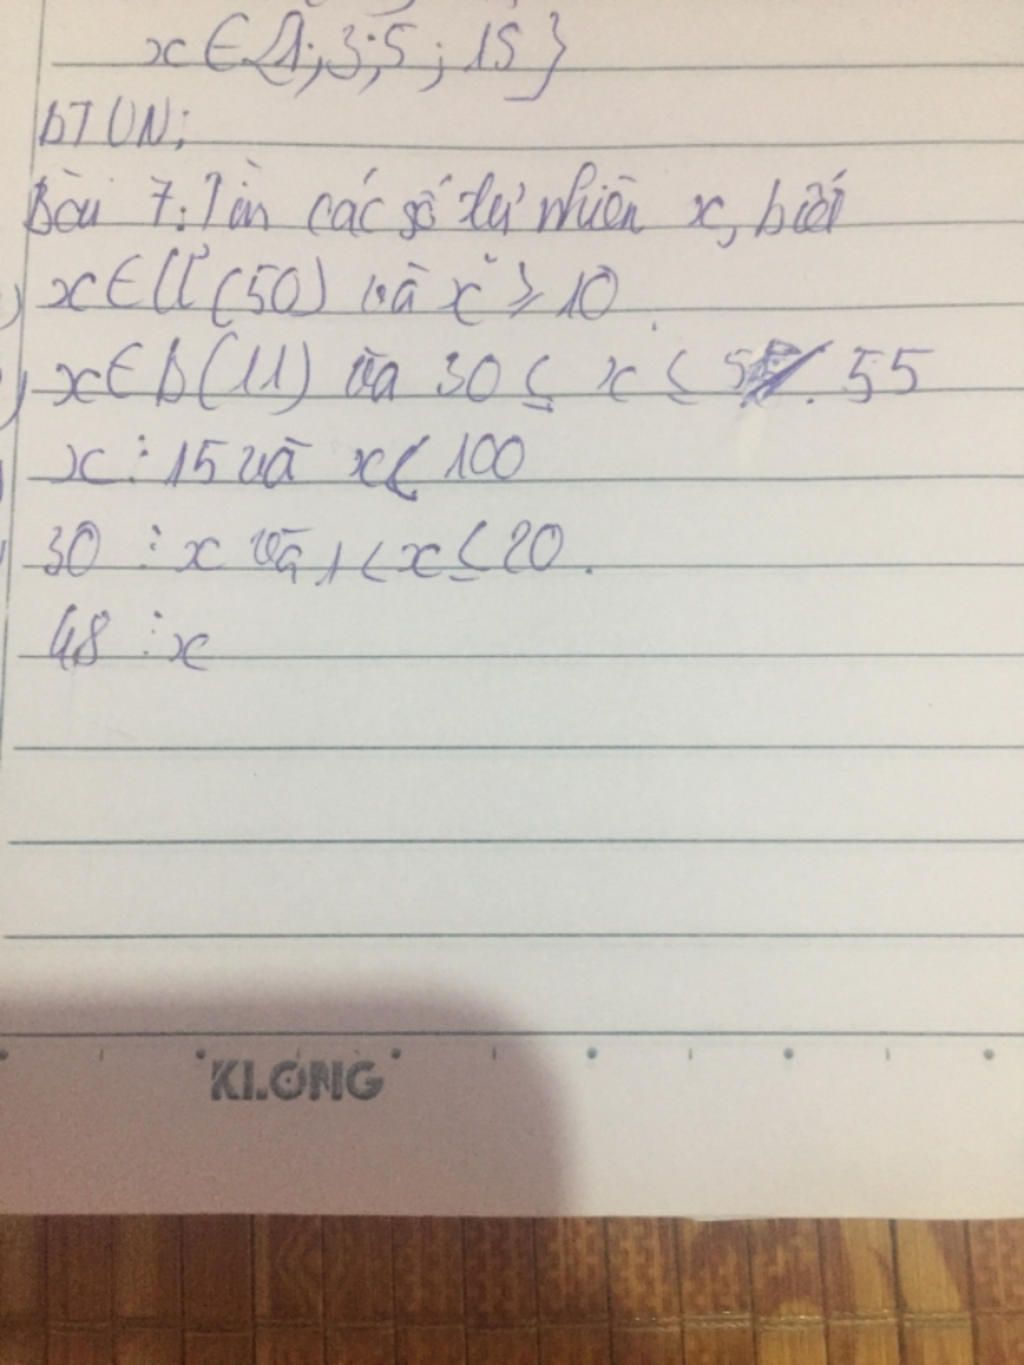 x ∈ {1; 3; 5; 15}
BTVN:
Bài 7: Tìm các số tự nhiên x, biết
) x ∈ Ư(50) và x ≥ 10.
) x ∈ B(11) và 30 ≤ x ≤ 55
x ⋮ 15 và x < 100
30 ⋮ x và 1 < x ≤ 20.
48 ⋮ x
KLONG